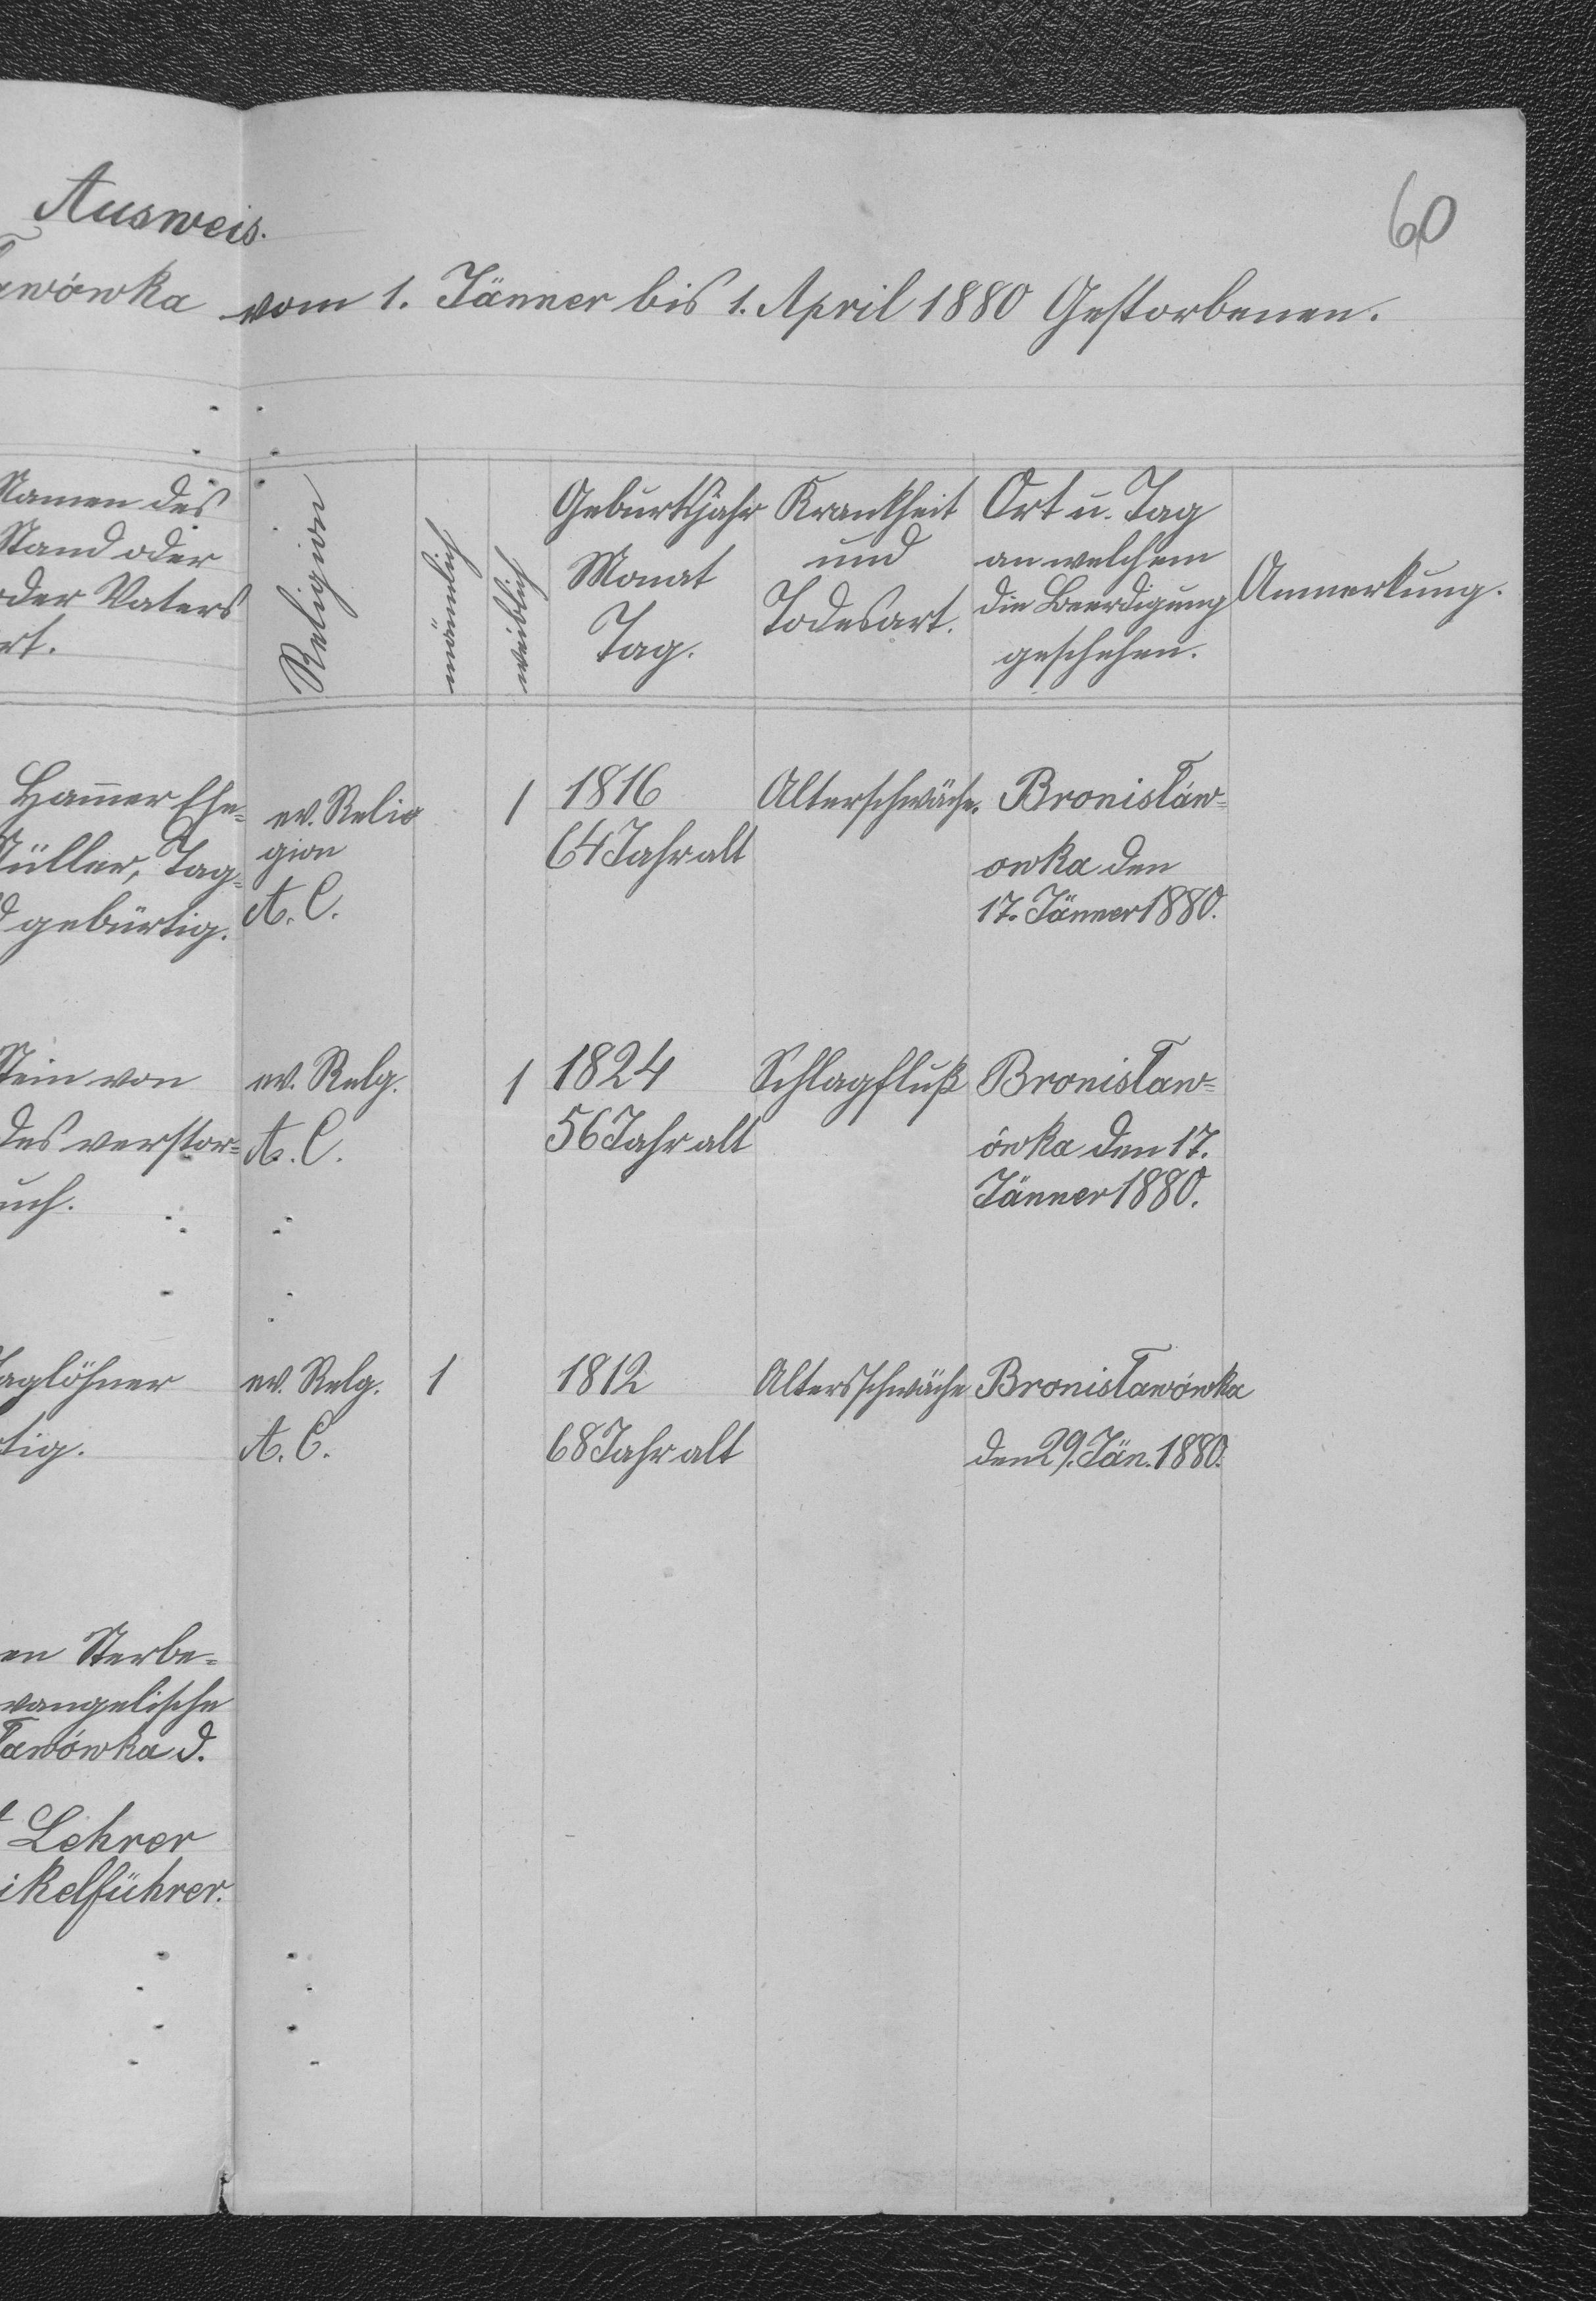 60
Ausweis.
awówka vom 1. Jänner bis 1. April 1880 Gestorbenen.
Namen des
Stand oder
oder Vaters
rt.
Religion
männlich
weiblich
Geburtsjahr
Monat
Tag.
Krankheit
und
Todesart.
Ort u. Tag
an welchem
die Beerdigung
geschehen.
Anmerkung.
Ham̅er Ehe=
Müller, Tag=
d gebürtig.
ev. Relio
gion
A. C.
1
1816
64 Jahr alt
Alterschwäche.
Bronisław=
owka den
17. Jänner 1880.
Stein von
des verstor=
uch.
ev. Relg.
A. C.
1
1824
56 Jahr alt
Schlagfluß
Bronisław=
ówka den 17.
Jänner 1880.
Taglöhner
tig.
ev. Relg.
A. C.
1
1812
68 Jahr alt
Altersschwäche
Bronisławówka
den 29. Jän. 1880.
en Sterbe=
vangelische
ławówka d.
t Lehrer
ikelführer.